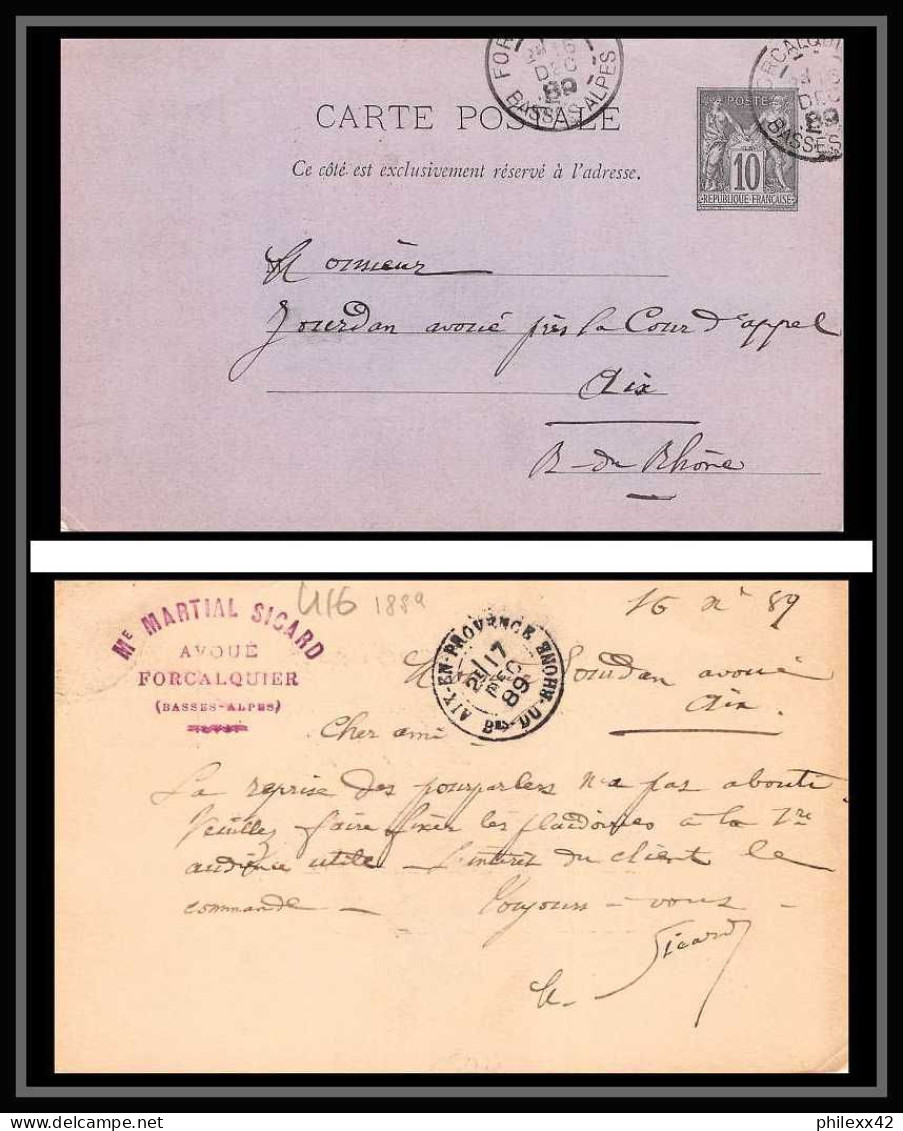 CARTE POSTALE
Ce côté est exclusivement réservé à l'adresse.
POSTE
10
REPUBLIQUE FRANÇAISE
DEC
89
BASSES-ALPES
FORCALQUIER
16
DEC
89
BASSES
Monsieur
Jourdan avoué près la Cour d'appel
Aix
B-du-Rhône
ME MARTIAL SICARD
AVOUÉ
FORCALQUIER
(BASSES-ALPES)
1889
AIX-EN-PROVENCE
2E/17
DEC
89
BES-DU-RHONE
16 Xe 89
Jourdan avoué
Aix
Cher ami
La reprise des pourparlers n'a pas abouti.
Veuillez faire fixer les plaidoiries à la 1re
audience utile - L'intérêt du client le
commande - Toujours à vous -
Sicard
philexx42